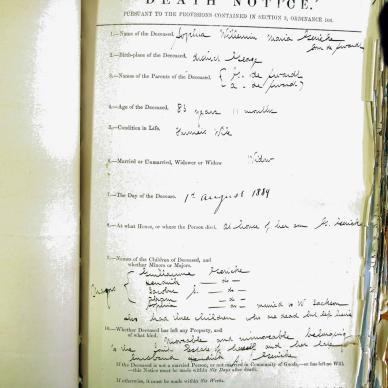 DEATH NOTICE.
PURSUANT TO THE PROVISIONS CONTAINED IN SECTION 3, ORDINANCE 104.
1.—Name of the Deceased, Sophia Willemin Maria Gericke
born de Swardt
2.—Birth-place of the Deceased, district George
3.—Names of the Parents of the Deceased, de Swardt
de Swardt
4.—Age of the Deceased, 83 years 11 months
5.—Condition in Life, Farmer's Wife
6.—Married or Unmarried, Widower or Widow Widow
7.—The Day of the Decease, 1st August 1889
8.—At what House, or where the Person died, at house of her son Gericke
9.—Names of the Children of Deceased, and
whether Minors or Majors.
Guilliaume Gericke
Hendrik — do —
Jacobus — do —
— do —
Sophia — do — married to W
also had three children who are dead but left heirs
10.—Whether Deceased has left any Property, and
of what kind. Movable and immovable belonging
to the joint Estate of herself and her late
husband Hendrik Gericke
If the Deceased is not a Married person, or not married in Community of Goods,—or has left no Will,
—this Notice must be made within Ten Days after death.
If otherwise, it must be made within Six Weeks.